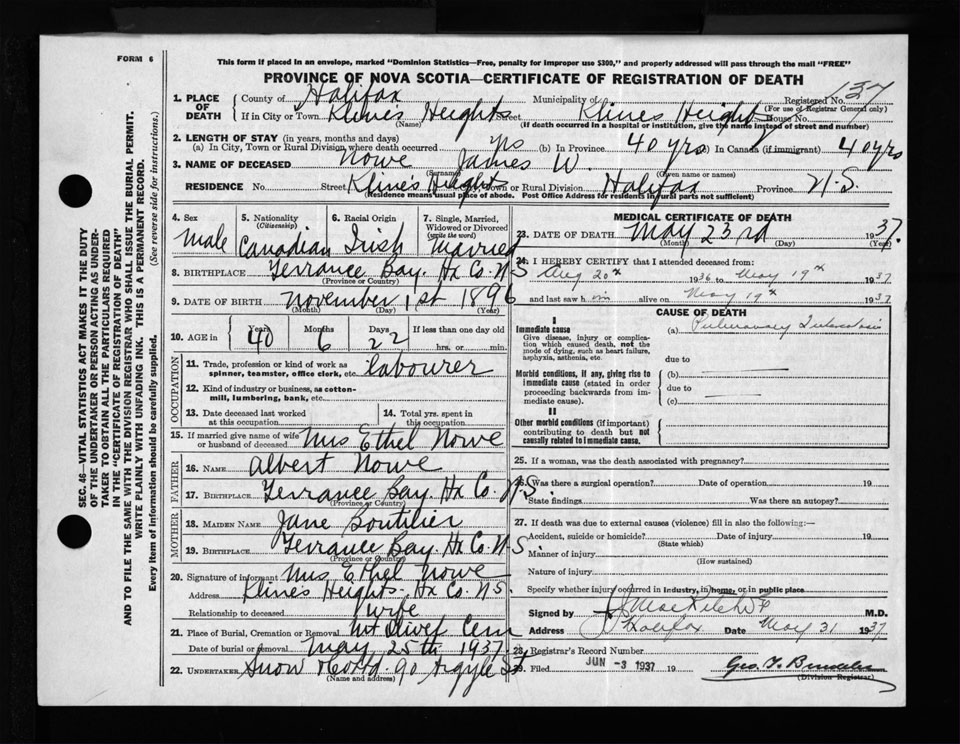 FORM 6
This form if placed in an envelope, marked "Dominion Statistics—Free, penalty for improper use $300," and properly addressed will pass through the mail "FREE"
PROVINCE OF NOVA SCOTIA—CERTIFICATE OF REGISTRATION OF DEATH
SEC. 46—VITAL STATISTICS ACT MAKES IT THE DUTY
OF THE UNDERTAKER OR PERSON ACTING AS UNDER-
TAKER TO OBTAIN ALL THE PARTICULARS REQUIRED
IN THE "CERTIFICATE OF REGISTRATION OF DEATH"
AND TO FILE THE SAME WITH THE DIVISION REGISTRAR WHO SHALL ISSUE THE BURIAL PERMIT.
WRITE PLAINLY WITH UNFADING INK. THIS IS A PERMANENT RECORD.
Every item of information should be carefully supplied. (See reverse side for instructions.)
1. PLACE OF DEATH
County of Halifax Municipality of Registered No. 137
(For use of Registrar General only)
If in City or Town Kline's Heights Street Kline's Heights House No.
(Name) (If death occurred in a hospital or institution, give the name instead of street and number)
2. LENGTH OF STAY (in years, months and days)
(a) In City, Town or Rural Division where death occurred yrs (b) In Province 40 yrs (c) In Canada (if immigrant) 40 yrs
3. NAME OF DECEASED Nowe James W.
(Surname) (Given name or names)
RESIDENCE No. Street Kline's Heights Town or Rural Division Halifax Province N.S.
(Residence means usual place of abode. Post Office Address for residents in rural parts not sufficient)
4. Sex Male
5. Nationality (Citizenship) Canadian
6. Racial Origin Irish
7. Single, Married, Widowed or Divorced (write the word) Married
8. BIRTHPLACE Terrance Bay. Hx Co. N.S
(Province or Country)
9. DATE OF BIRTH November 1st 1896
(Month) (Day) (Year)
10. AGE in Years 40 Months 6 Days 22 If less than one day old hrs. or min.
OCCUPATION
11. Trade, profession or kind of work as spinner, teamster, office clerk, etc. labourer
12. Kind of industry or business, as cotton-mill, lumbering, bank, etc.
13. Date deceased last worked at this occupation
14. Total yrs. spent in this occupation
15. If married give name of wife or husband of deceased Mrs Ethel Nowe
FATHER
16. NAME Albert Nowe
17. BIRTHPLACE Terrance Bay. Hx Co. N.S.
(Province or Country)
MOTHER
18. MAIDEN NAME Jane Boutilier
19. BIRTHPLACE Terrance Bay. Hx Co. N.S.
(Province or Country)
20. Signature of informant Mrs Ethel Nowe
Address Kline's Heights. Hx Co. N.S.
Relationship to deceased wife
21. Place of Burial, Cremation or Removal Mt Olivet Cem
Date of burial or removal May 25th 1937
22. UNDERTAKER Snow & Co Ltd. 90 Argyle St
(Name and address)
MEDICAL CERTIFICATE OF DEATH
23. DATE OF DEATH May 23rd 1937.
(Month) (Day) (Year)
24. I HEREBY CERTIFY that I attended deceased from:
Aug 20th 1936 to May 19th 1937
and last saw him alive on May 19th 1937
CAUSE OF DEATH
I
Immediate cause
Give disease, injury or complication which caused death, not the mode of dying, such as heart failure, asphyxia, asthenia, etc.
(a) Pulmonary Tuberculosis
due to
Morbid conditions, if any, giving rise to immediate cause (stated in order proceeding backwards from immediate cause).
(b)
due to
(c)
II
Other morbid conditions (if important) contributing to death but not causally related to immediate cause.
25. If a woman, was the death associated with pregnancy?
26. Was there a surgical operation? Date of operation 19
State findings Was there an autopsy?
27. If death was due to external causes (violence) fill in also the following:—
Accident, suicide or homicide? Date of injury 19
(State which)
Manner of injury
(How sustained)
Nature of injury
Specify whether injury occurred in industry, in home, or in public place
Signed by M.D.
Address Halifax Date May 31 1937
28. Registrar's Record Number
29. Filed JUN -3 1937 19 Geo.
(Division Registrar)